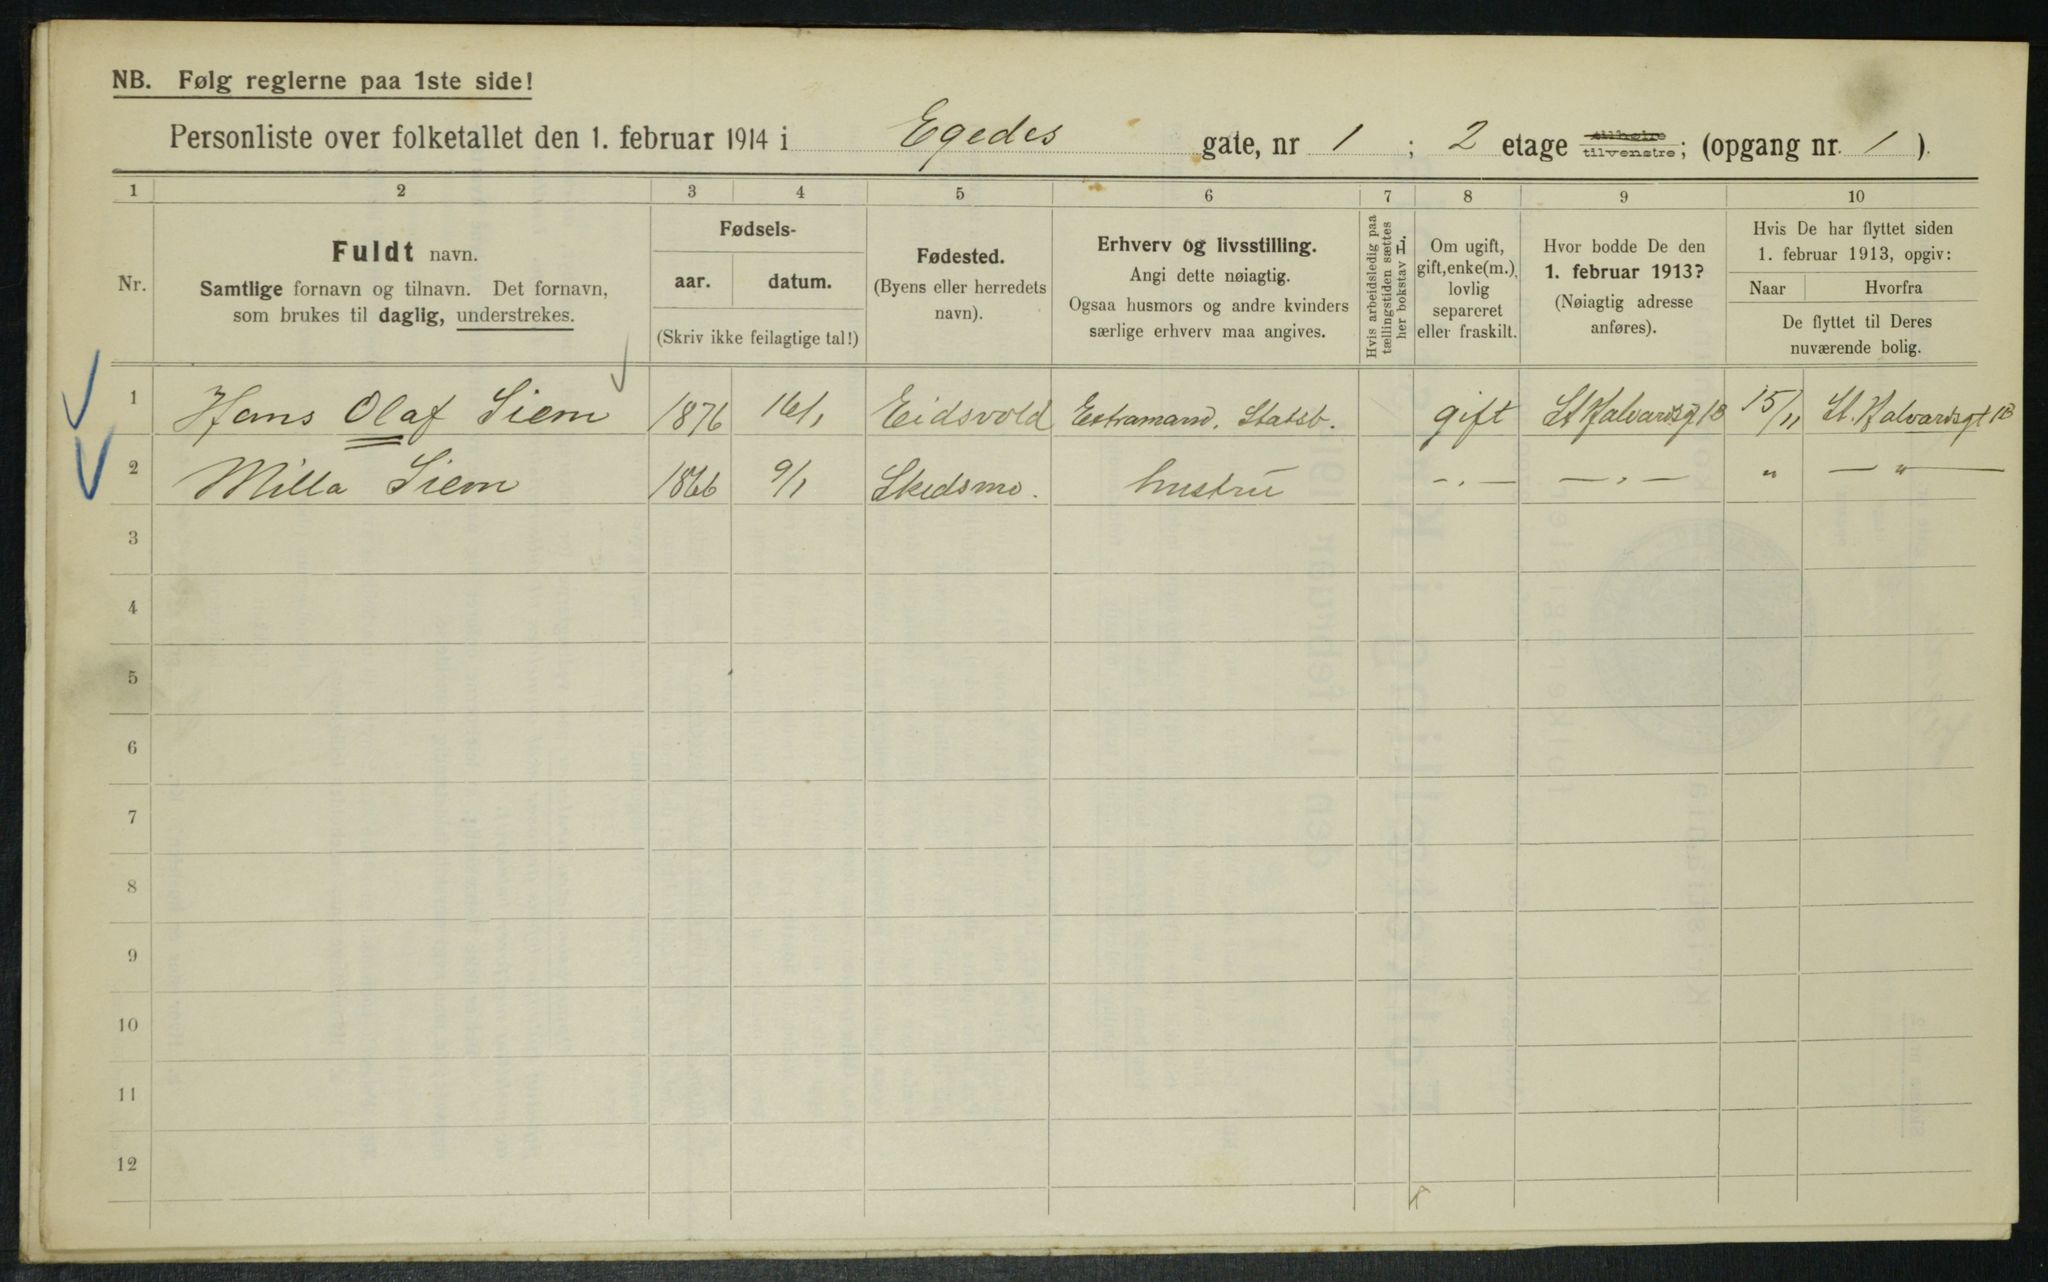 NB. Følg reglerne paa 1ste side!
Personliste over folketallet den 1. februar 1914 i Egedes gate, nr 1 ; 2 etage tilhøire tilvenstre; (opgang nr. 1 ).
1 2 3 4 5 6 7 8 9 10
Nr.
Fuldt navn.
Samtlige fornavn og tilnavn. Det fornavn,
som brukes til daglig, understrekes.
Fødsels-
aar. datum.
(Skriv ikke feilagtige tal!)
Fødested.
(Byens eller herredets
navn).
Erhverv og livsstilling.
Angi dette nøiagtig.
Ogsaa husmors og andre kvinders
særlige erhverv maa angives.
Hvis arbeidsledig paa
tællingstiden sættes
her bokstav L.
Om ugift,
gift, enke(m.),
lovlig
separeret
eller fraskilt.
Hvor bodde De den
1. februar 1913?
(Nøiagtig adresse
anføres).
Hvis De har flyttet siden
1. februar 1913, opgiv:
Naar Hvorfra
De flyttet til Deres
nuværende bolig.
1 Hans Olaf Siem 1876 16/1 Eidsvold Extramand. Statsb. gift St Halvardsg 1B 15/11 St. Halvardsgt 1B
2 Milla Siem 1866 9/1 Skedsmo. hustru —„— —„— „ —„—
3
4
5
6
7
8
9
10
11
12